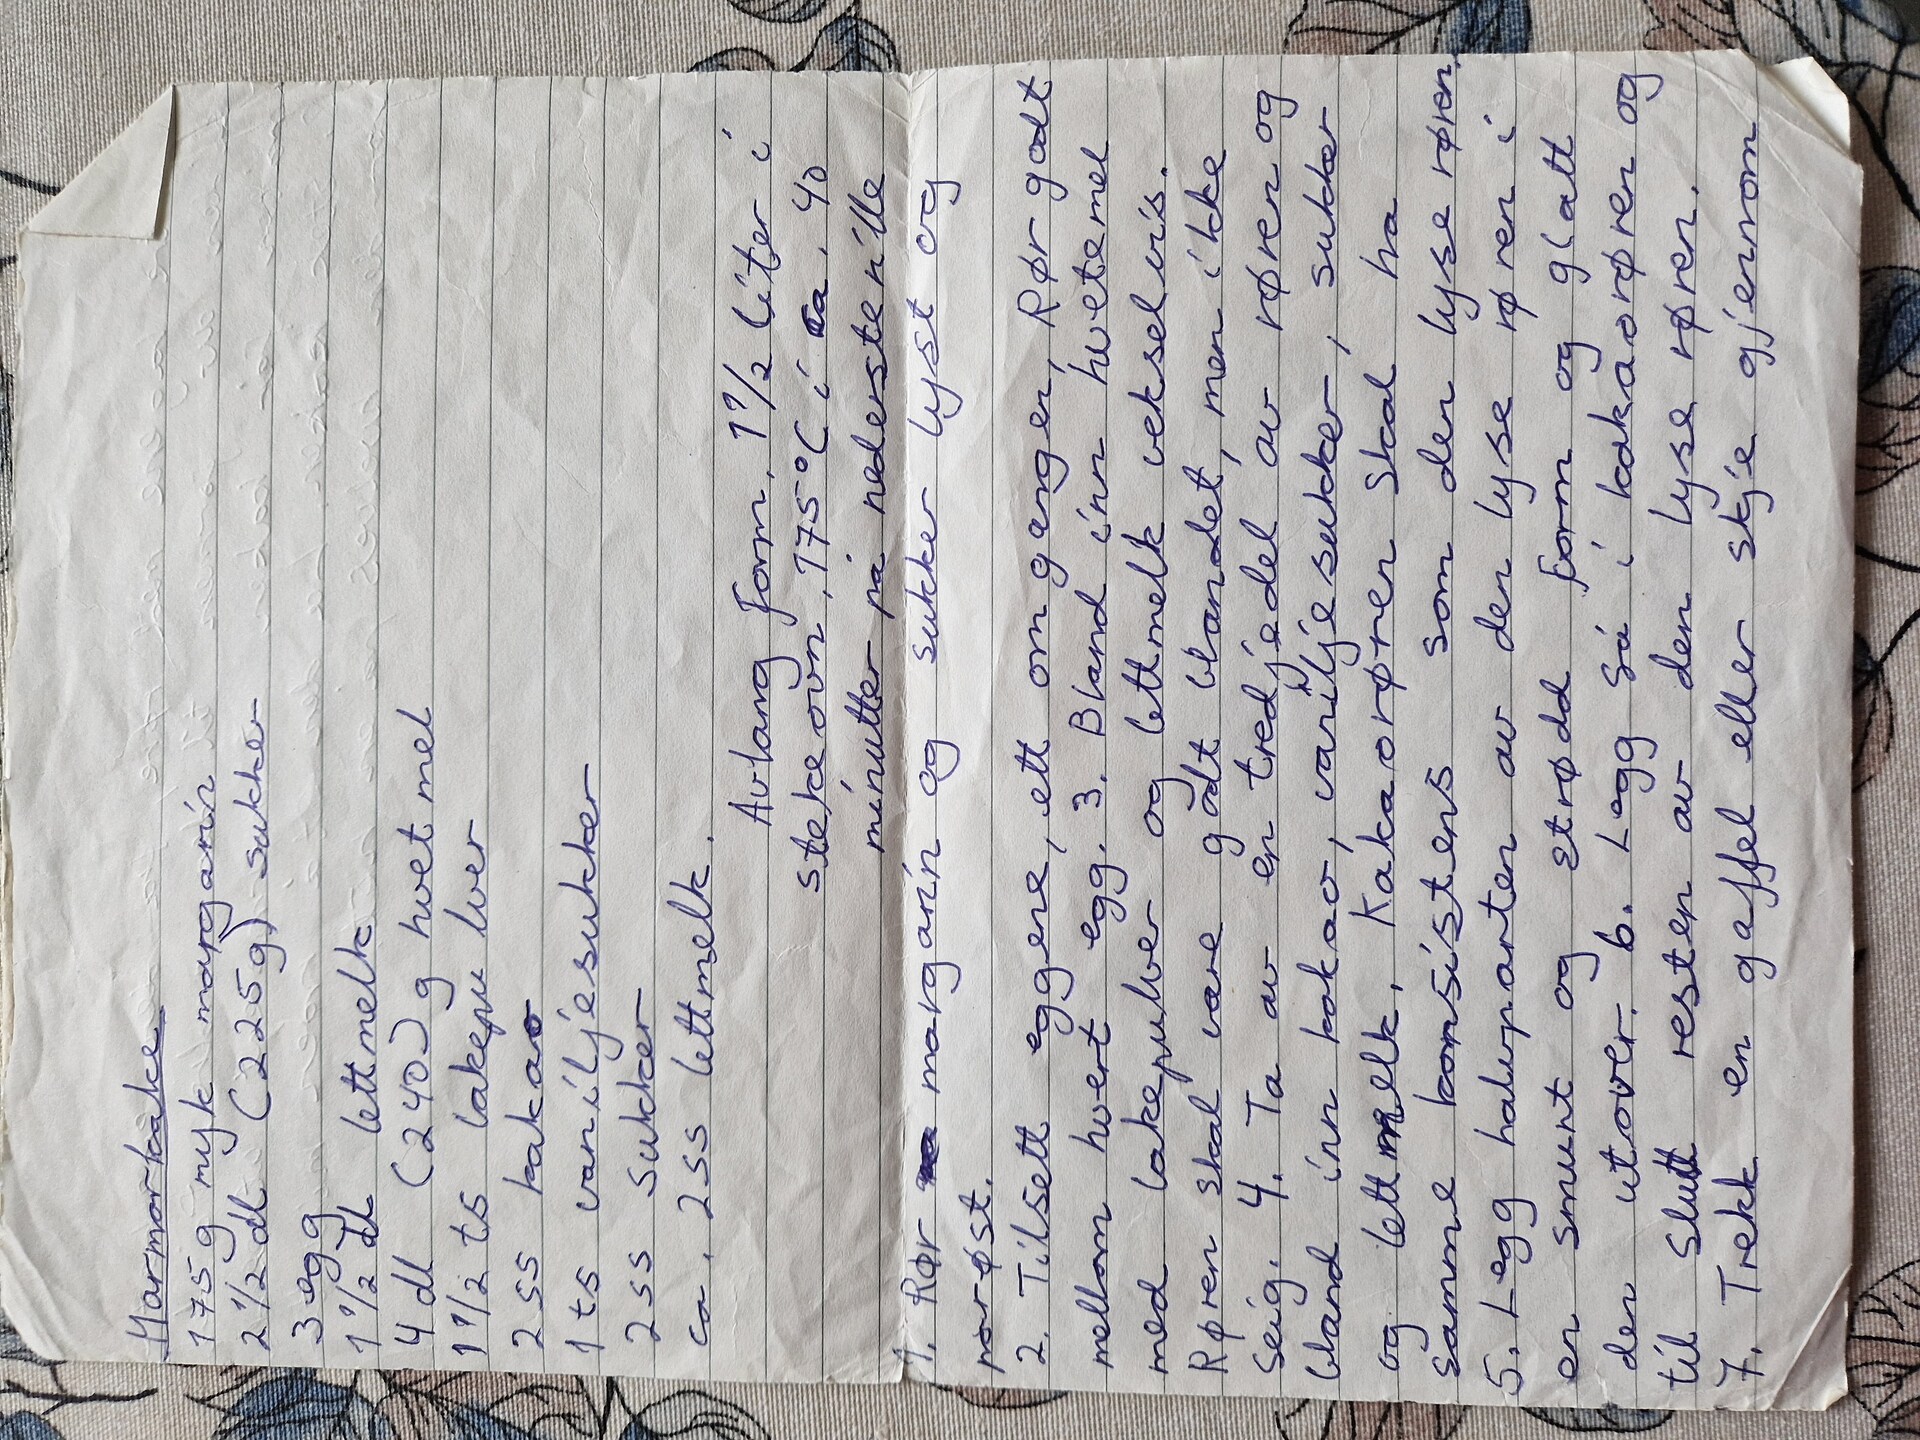 Marmorkake
175g myk margarin
2 1/2 dl (225g) sukker
3 egg
1 1/2 dl lettmelk
4 dl (240) g hvetmel
1 1/2 ts bakepulver
2 ss kakao
1 ts vaniljesukker
2 ss sukker
ca. 2 ss lettmelk.
Avlang form. 1 1/2 liter i
stekeovn. 175°C i ca. 40
minutter på nederste rille
1. Rør margarin og sukker lyst og
porøst.
2. Tilsett eggene, ett om gangen, Rør godt
mellom hvert egg. 3. Bland inn hvetemel
med bakepulver og lettmelk vekselvis.
Røren skal være godt blandet, men ikke
seig. 4. Ta av en tredjedel av røren og
bland inn kakao, vaniljesukker, sukker
og lettmelk. Kakaorøren skal ha
samme konsistens som den lyse røren.
5. Legg halvparten av den lyse røren i
en smurt og strødd form og glatt
den utover. 6. Legg så i kakaorøren og
til slutt resten av den lyse røren.
7. Trekk en gaffel eller skje gjennom